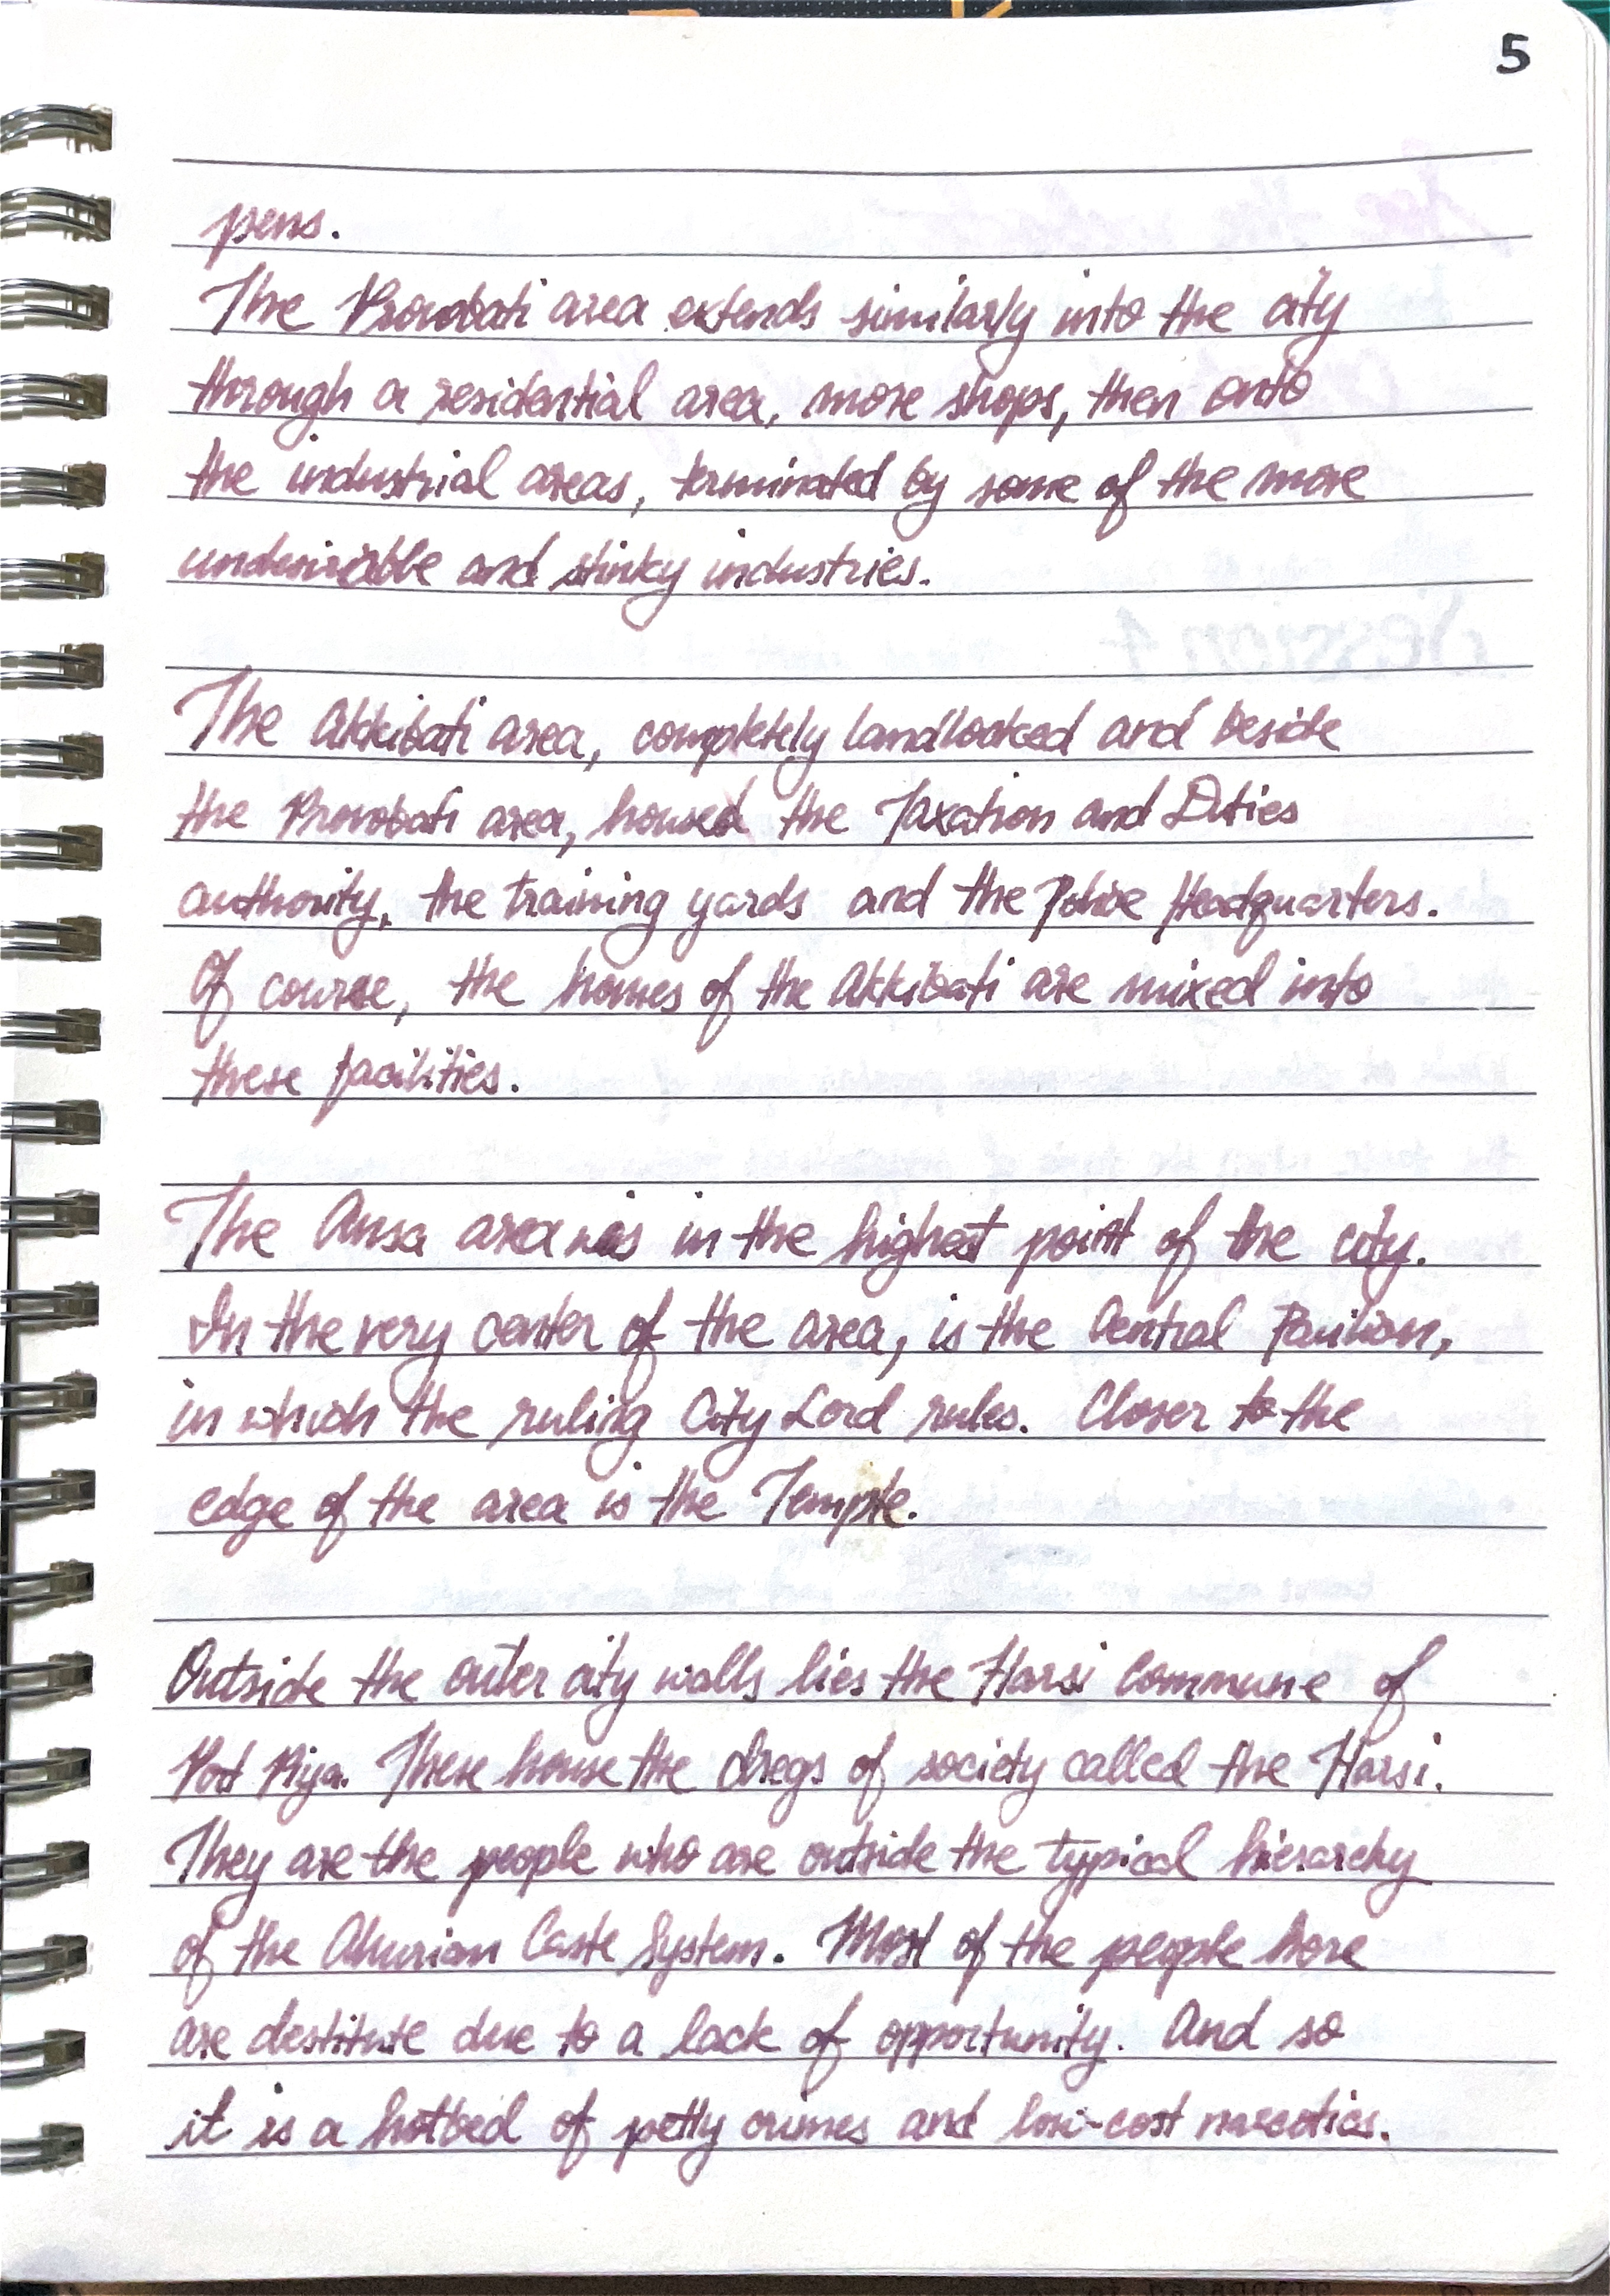 5
pens.
The Provobati area extends similarly into the city
through a residential area, more shops, then onto
the industrial areas, terminated by some of the more
undesirable and stinky industries.
The Akkibati area, completely landlocked and beside
the Provobati area, housed the Taxation and Duties
authority, the training yards and the Police Headquarters.
Of course, the homes of the Akkibati are mixed into
these facilities.
The Ansa area is in the highest point of the city.
In the very center of the area, is the Central Pavilion,
in which the ruling City Lord rules. Closer to the
edge of the area is the Temple.
Outside the outer city walls lies the Harsi Commune of
Port Piya. These house the dregs of society called the Harsi.
They are the people who are outside the typical hierarchy
of the Caste System. Most of the people here
are destitute due to a lack of opportunity. And so
it is a hotbed of petty crimes and low-cost narcotics.